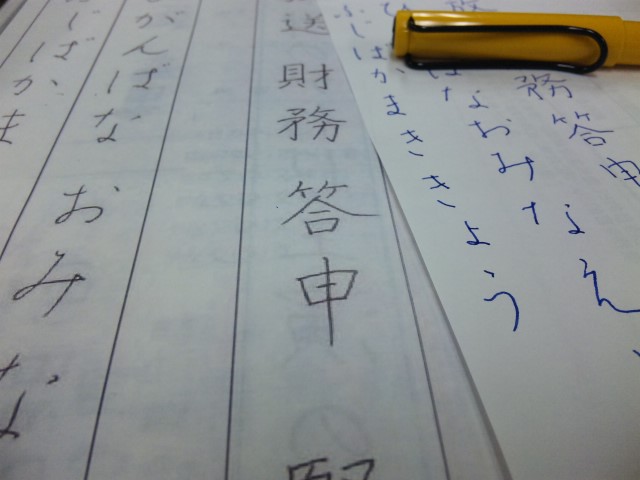 務答申
ばなおみなえ
ふじばかまききょう
送財務答申
がんばなおみな
じばかま